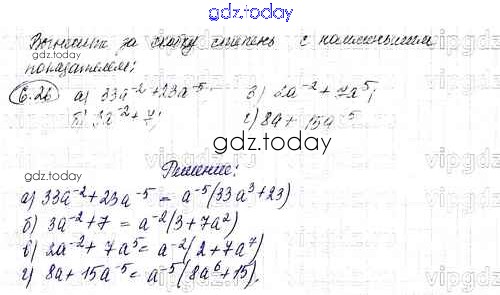 gdz.today
Вынесите за скобку степень с наименьшим
показателем:
6.26 а) 33a⁻²+23a⁻⁵ в) 2a⁻²+7a⁵;
б) 3a⁻²+7; г) 8a+15a⁻⁵
gdz.today
Решение:
а) 33a⁻²+23a⁻⁵ = a⁻⁵(33a³+23)
б) 3a⁻²+7 = a⁻²(3+7a²)
в) 2a⁻²+7a⁵ = a⁻²(2+7a⁷)
г) 8a+15a⁻⁵ = a⁻⁵(8a⁶+15).
gdz.today